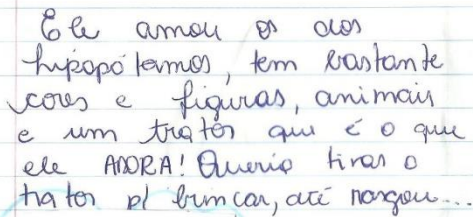 Ele amou os dos
hipopótamos, tem bastante
cores e figuras, animais
e um trator que é o que
ele ADORA! Queria tirar o
trator p/ brincar, até rasgou...